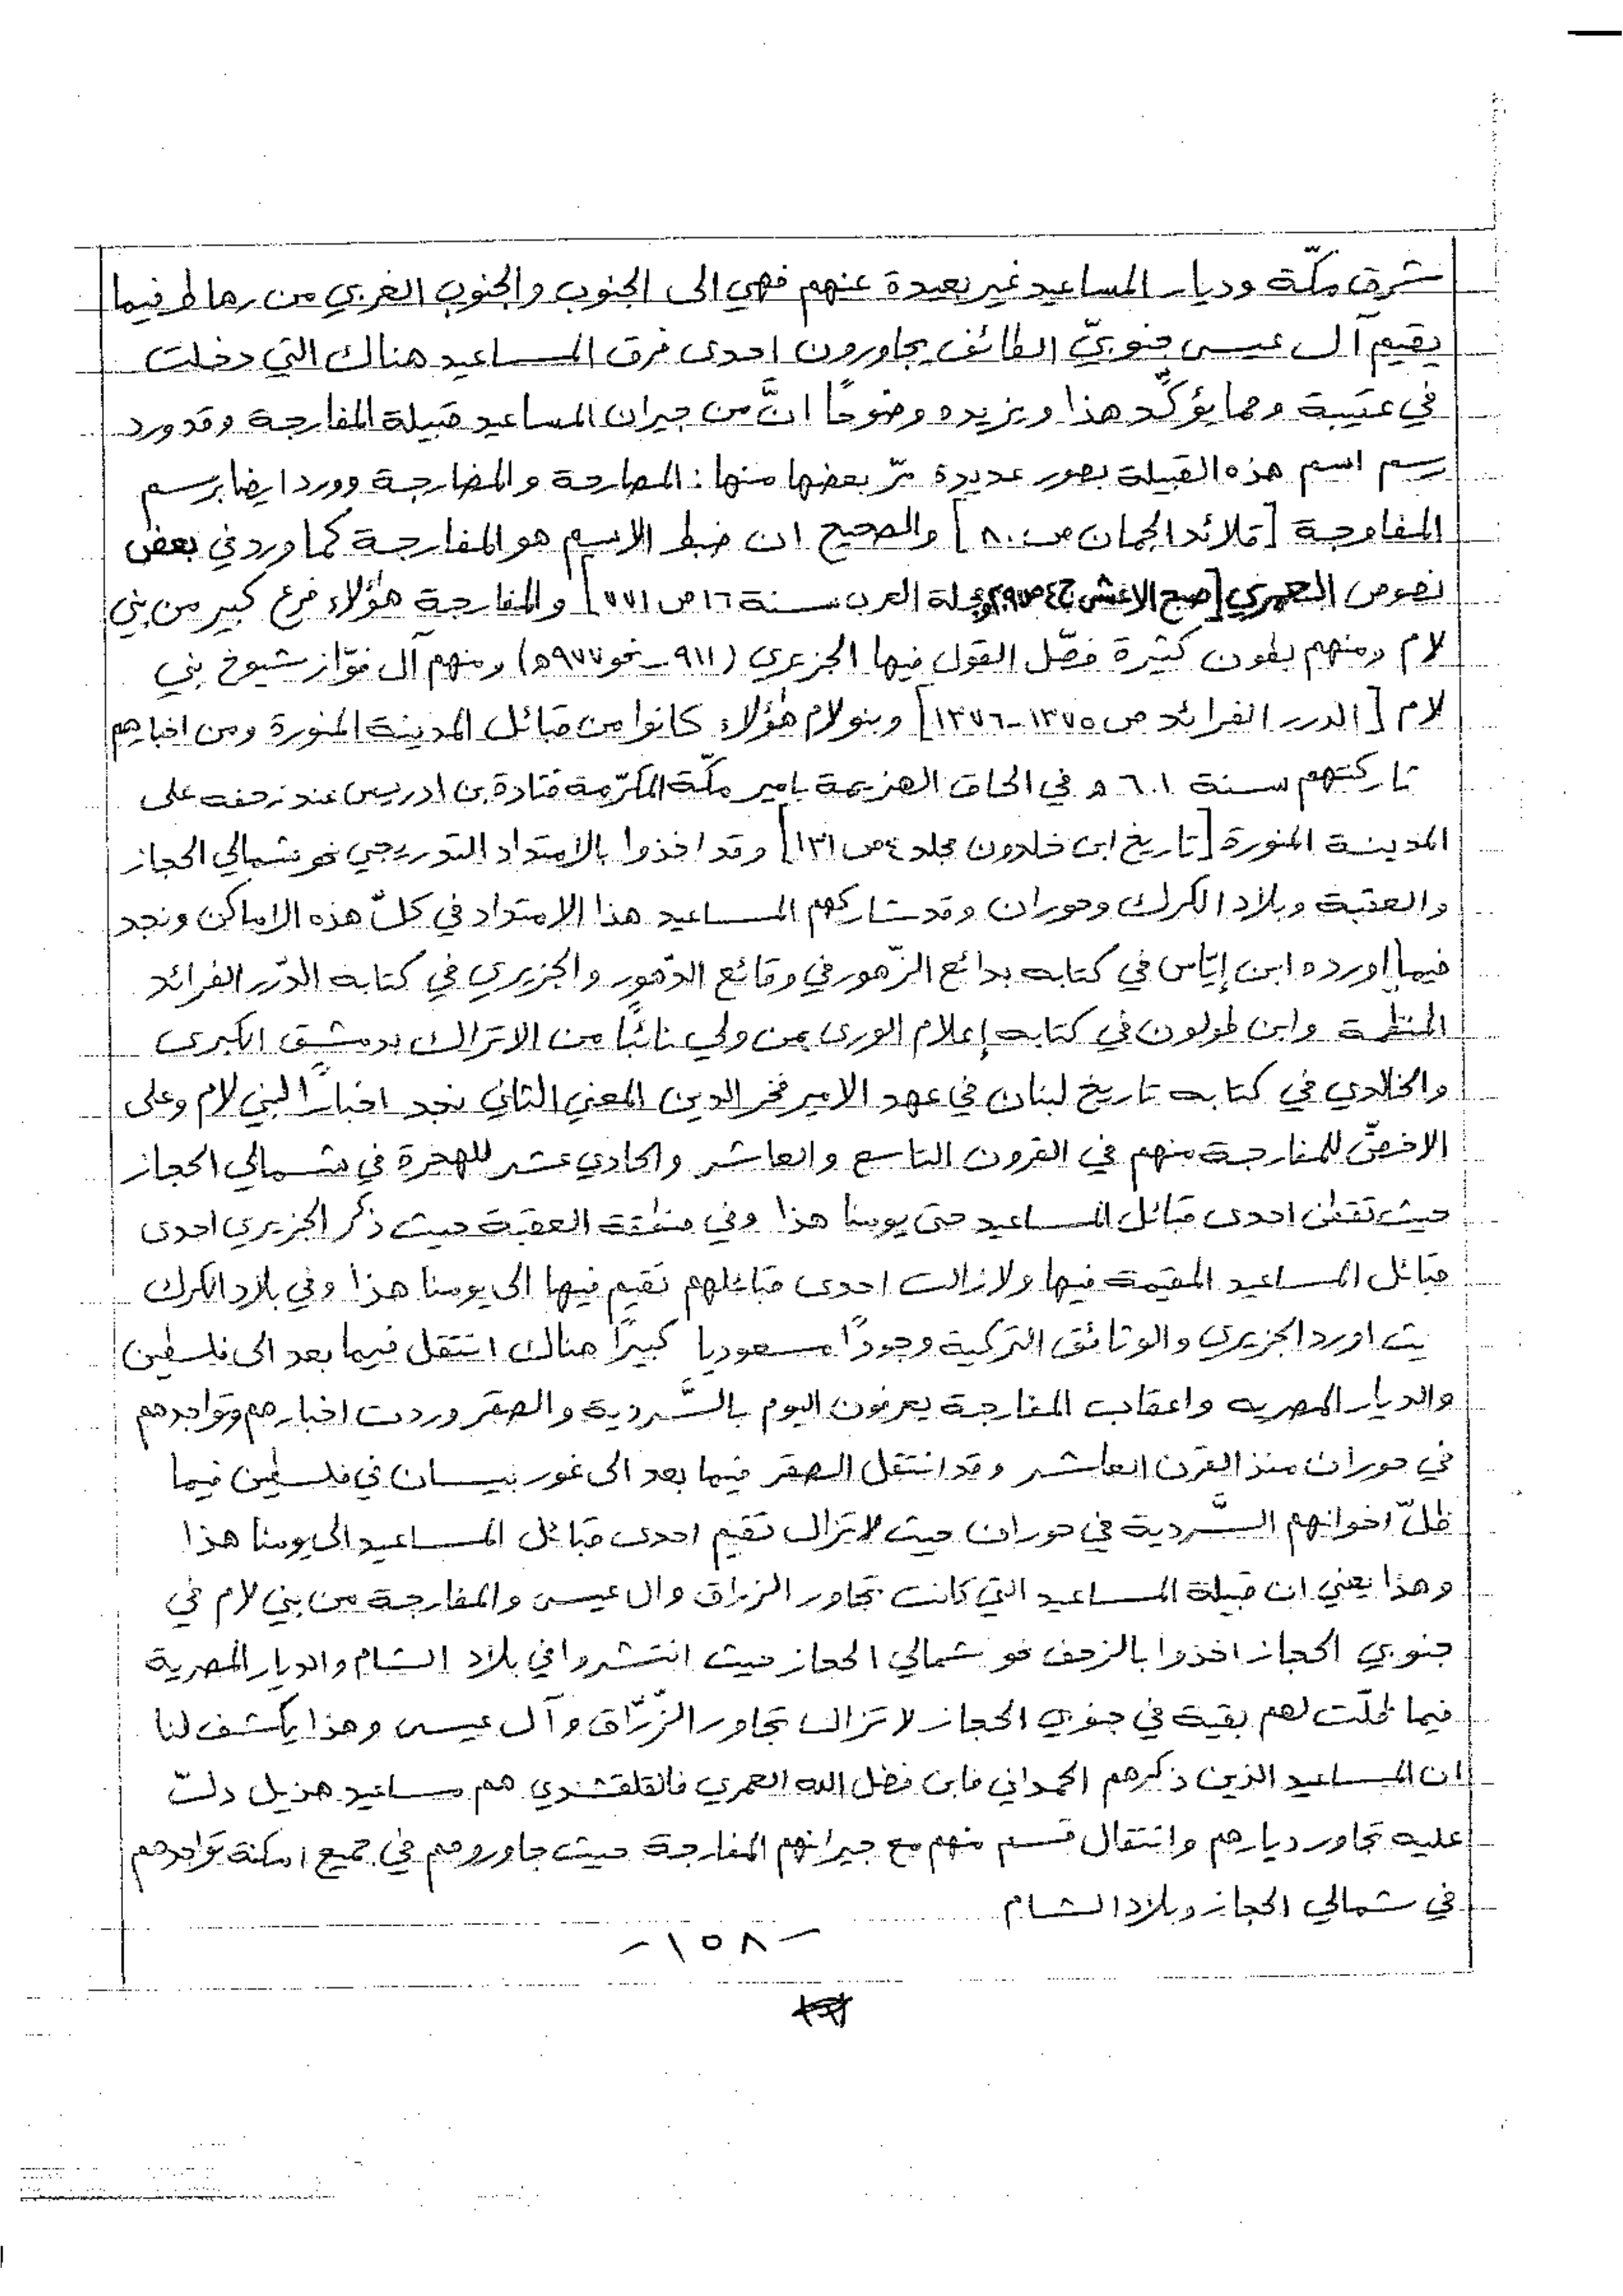 شرق مكّة وديار المساعيد غير بعيدة عنهم فهي الى الجنوب والجنوب الغربي من رهاط فيما
يقيم آل عيسى جنوبيّ الطائف يجاورون احدى فرق المساعيد هناك التي دخلت
في عتيبة ومما يؤكّد هذا ويزيده وضوحًا انَّ من جيران المساعيد قبيلة المفارجة وقد ورد
رسم اسم هذه القبيلة بصور عديدة مرّ بعضها منها : المصارحة والمضارجة وورد ايضا برسم
المفاوجة [قلائد الجمان ص ٨٠] والصحيح ان ضبط الاسم هو المفارجة كما ورد في بعض
نصوص العمري [صبح الاعشى ج٤ مجلة العرب سنة ١٦ ص ٧٧١] والمفارجة هؤلاء فرع كبير من بني
لام ومنهم بطون كثيرة فصّل القول فيها الجزيري (٩١١ - نحو ٩٧٧ه) ومنهم آل فوّاز شيوخ بني
لام [الدرر الفرائد ص ١٣٧٥-١٣٧٦] وبنو لام هؤلاء كانوا من قبائل المدينة المنورة ومن اخبارهم
تاركتهم سنة ٦٠١ ه في الحاق الهزيمة بامير مكّة المكرّمة قتادة بن ادريس عند زحفه على
المدينة المنورة [تاريخ ابن خلدون مجلد ٤ ص ١٣١] وقد اخذوا بالامتداد التدريجي نحو شمالي الحجاز
والعقبة وبلاد الكرك وحوران وقد شاركهم المساعيد هذا الامتداد في كلّ هذه الاماكن ونجد
فيما اورده ابن إيّاس في كتابه بدائع الزّهور في وقائع الدّهور والجزيري في كتابه الدّرر الفرائد
المنظمة وابن طولون في كتابه إعلام الورى بمن ولي نائبًا من الاتراك بدمشق الكبرى
والخالدي في كتابه تاريخ لبنان في عهد الامير فخر الدين المعني الثاني نجد اخبارًا لبني لام وعلى
الاخصّ للمفارجة منهم في القرون التاسع والعاشر والحادي عشر للهجرة في شمالي الحجاز
حيث تقطن احدى قبائل المساعيد حتى يومنا هذا وفي منطقة العقبة حيث ذكر الجزيري احدى
قبائل المساعيد المقيمة فيها ولازالت احدى قبائلهم تقيم فيها الى يومنا هذا وفي بلاد الكرك
يث اورد الجزيري والوثائق التركية وجودًا مسعوديا كبيرًا هناك انتقل فيما بعد الى فلسطين
والديار المصريه واعقاب المفارجة يعرفون اليوم بالسَّردية والصقر وردت اخبارهم وتواجدهم
في حوران منذ القرن العاشر وقد انتقل الصقر فيما بعد الى غور بيسان في فلسطين فيما
ظلّ اخوانهم السَّردية في حوران حيث لا تزال تقيم احدى قبائل المساعيد الى يومنا هذا
وهذا يعني ان قبيلة المساعيد التي كانت تجاور الزراق وال عيسى والمفارجة من بني لام في
جنوبي الحجاز اخذوا بالزحف نحو شمالي الحجاز حيث انتشروا في بلاد الشام والديار المصرية
فيما ظلّت لهم بقية في جنوبي الحجاز لا تزال تجاور الزّرّاق وآل عيسى وهذا يكشف لنا
ان المساعيد الذين ذكرهم الحمداني فابن فضل الله العمري فالقلقشندي هم مساعيد هذيل دلّت
عليه تجاور ديارهم وانتقال قسم منهم مع جيرانهم المفارجة حيث جاوروهم في جميع امكنة تواجدهم
في شمالي الحجاز وبلاد الشام
- ١٥٨ -